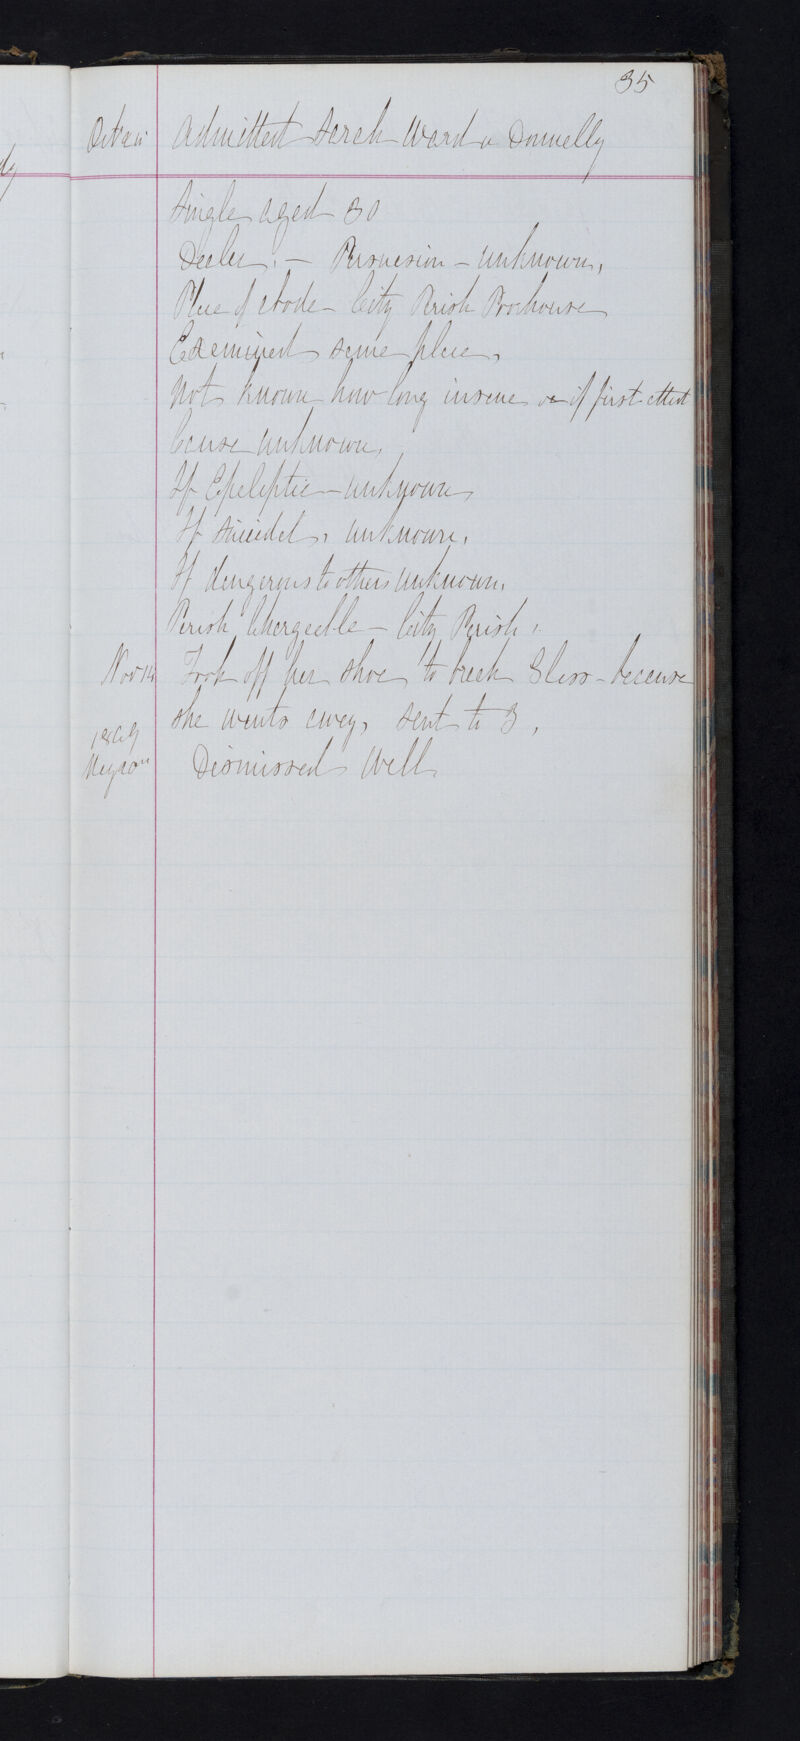 35
Admitted Sarah Ward or Donnelly
Single aged 30
Dealer. — Persuasion — unknown,
Place of abode — City Parish Poorhouse
Examined same place,
Not known how long insane or if first attack
Cause unknown,
If Epileptic — unknown
If Suicidal, unknown,
If dangerous to others unknown,
Parish Chargeable — City Parish,
Nov 14 Took off her shoe to break Glass — because
she wants away, sent to 3,
1869
Dismissed Well